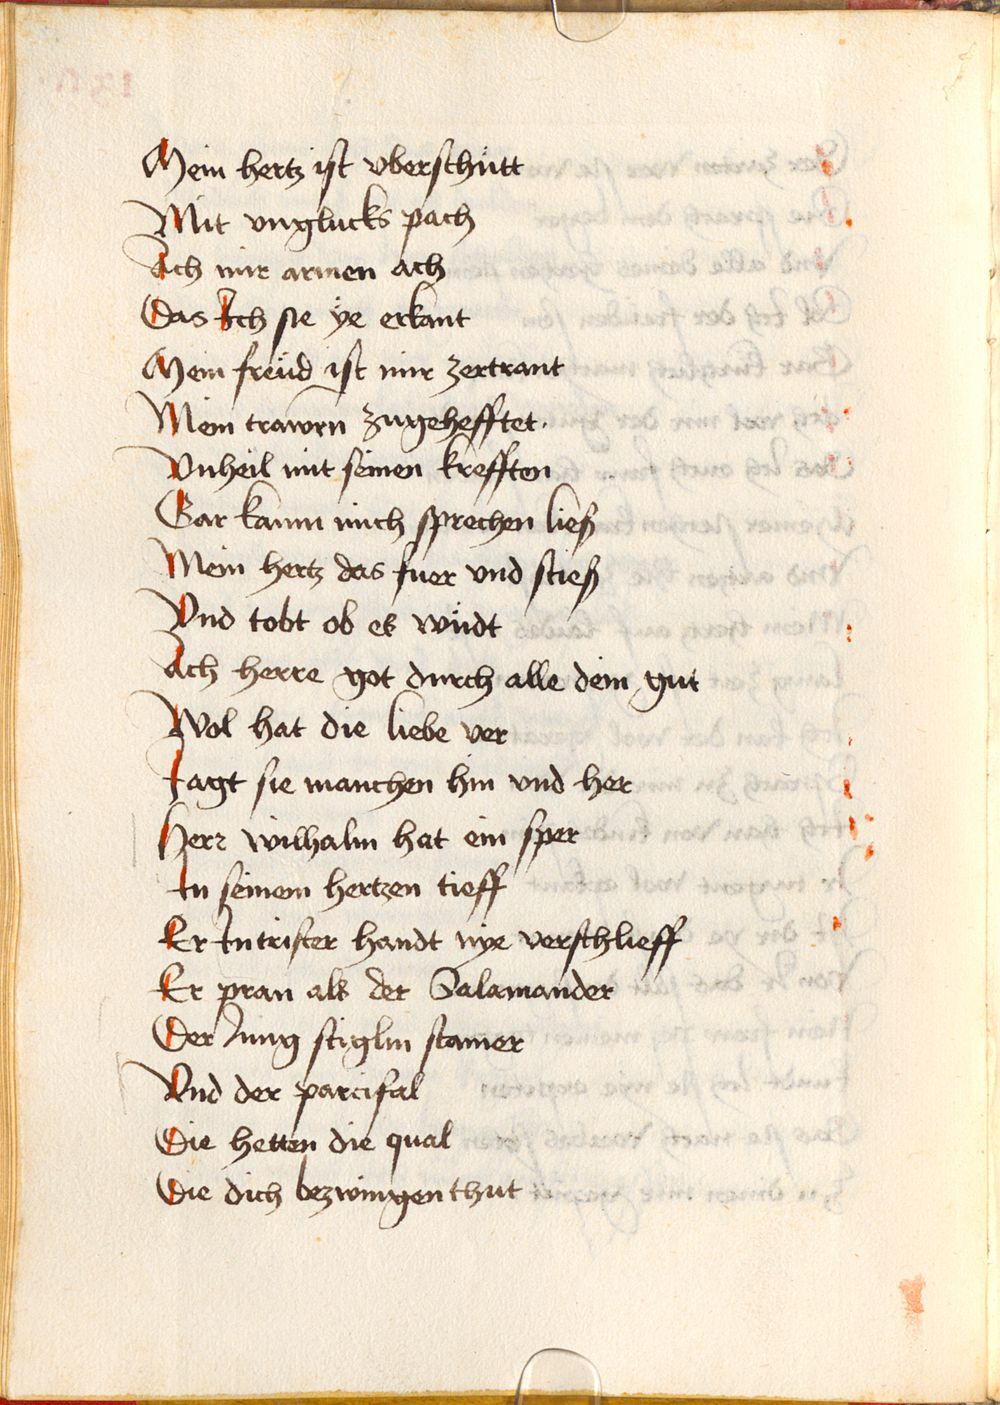 Mein hertz ist vberschütt
Mit vnglucks pach
Ach mir armen ach
Das Ich sie ÿe erkant
Mein freüd ist mir zertrant
Mein trawrn zugehefftet.
Vnheil mit seinen krefften
Gar kaum mich sprechen ließ
Mein hertz das fuer vnd stieß
Vnd tobt ob es wüdt
Ach herre got durch alle dein gut
Wol hat die liebe ver
Jagt sie manchen hin vnd her
Herr wilhalm hat ein sper
In seinem hertzen tieff
Er In trister handt nye verschlieff
Er pran als der Salamander
Der Jung stiglin
Vnd der parcifal
Die hetten die qual
Die dich bezwingen thut